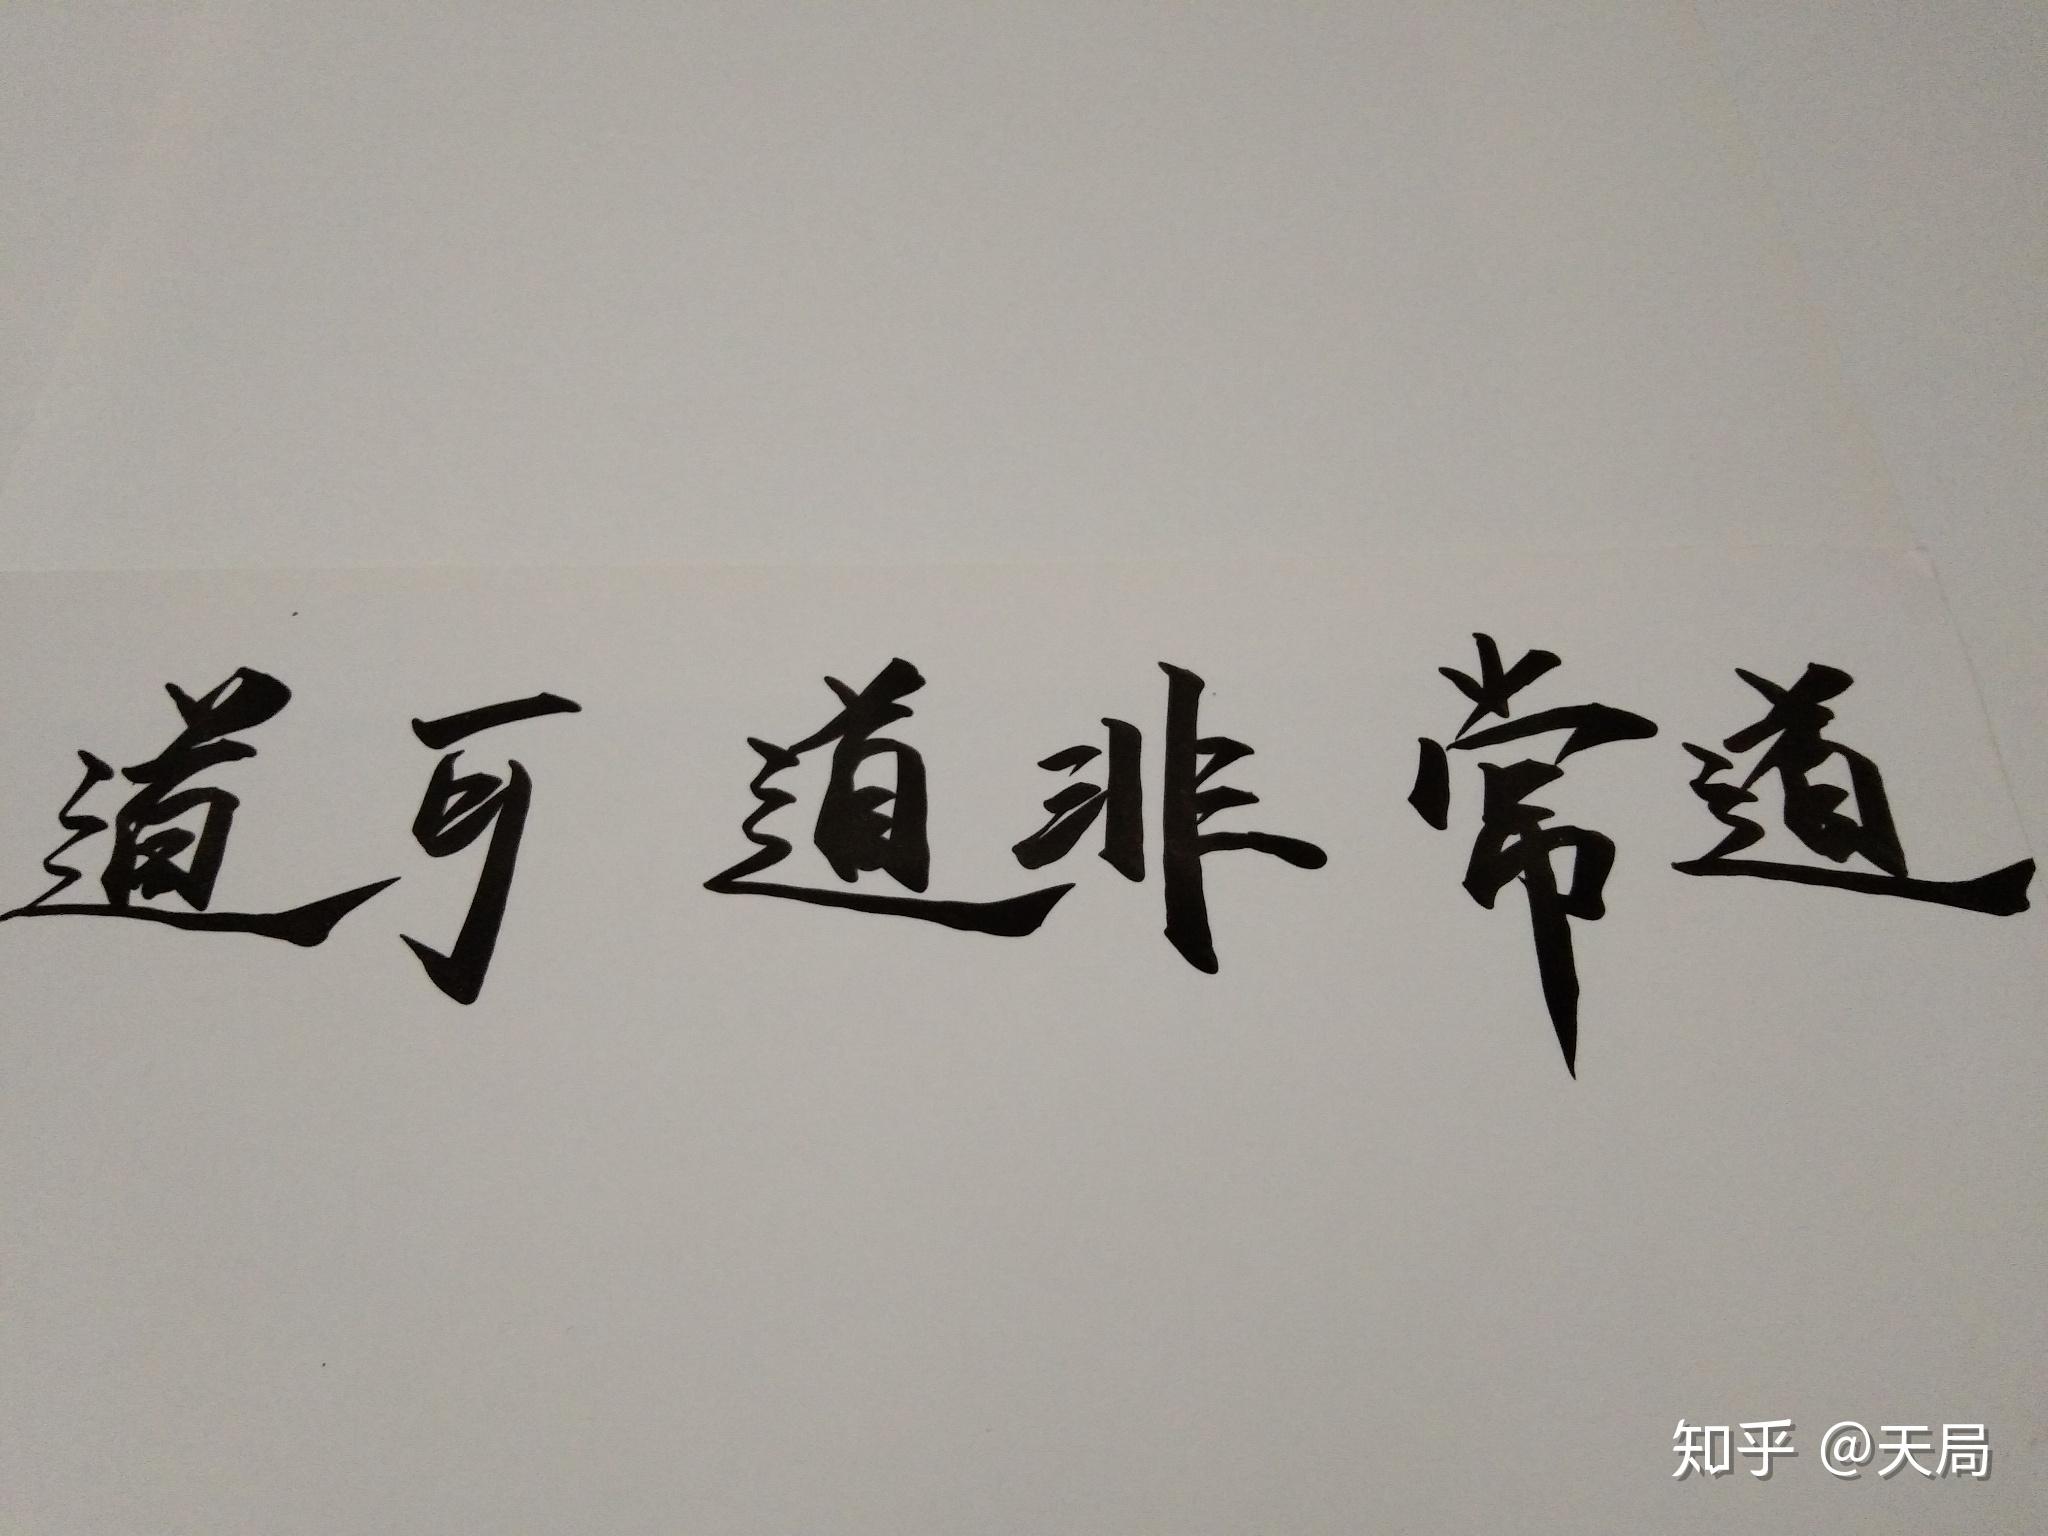 道可道非常道
知乎 @天局